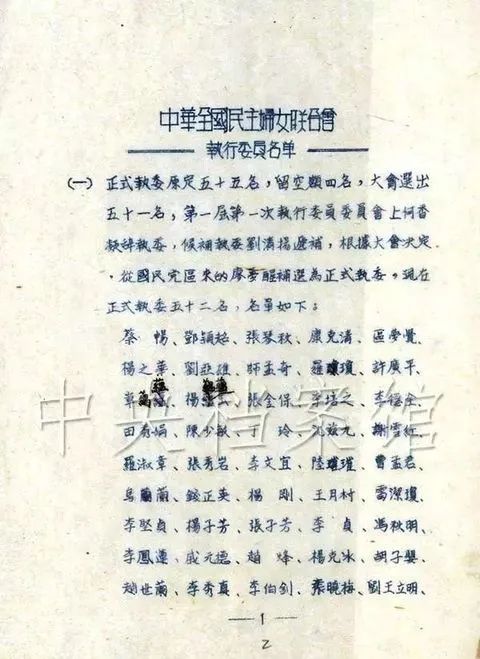 中華全國民主婦女联合會
執行委員名单
(一) 正式執委原定五十五名，留空額四名，大會選出
五十一名，第一屆第一次執行委員委員會上何香
凝辞執委，候補執委劉清揚遞補，根據大會决定
，从國民党區來的廖夢醒補選為正式執委，現在
正式執委五十二名，名單如下：
蔡　暢、鄧穎超、張琴秋、康克清、區夢覺、
楊之華、劉亞雄、帥孟奇、羅瓊、許廣平、
章蘊、楊、張金保、李培之、李德全、
田秀娟、陳少敏、丁　玲、沈兹九、謝雪红、
羅淑章、張秀岩、李文宜、陸璀、曹孟君、
烏蘭、錢正英、楊　剛、王月村、雷潔瓊、
李堅貞、楊子芳、張子芳、李　貞、馮秋明、
李鳳蓮、戚元德、趙　烽、楊克冰、胡子嬰、
趙世蘭、李秀真、李伯釗、張曉梅、劉王立明、
—1—
2
中央档案馆